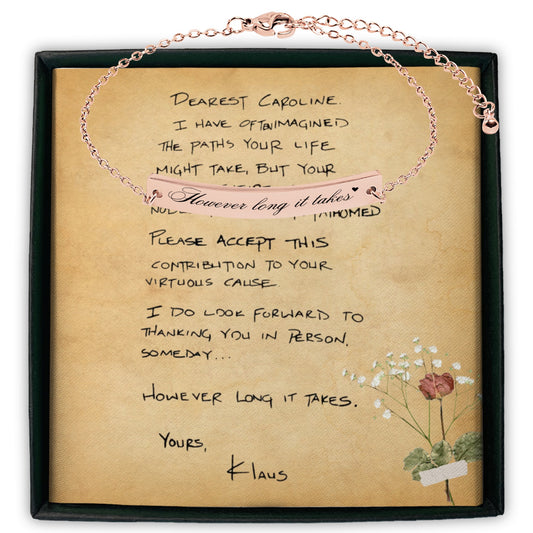 DEAREST CAROLINE.
I HAVE OFTEN IMAGINED
THE PATHS YOUR LIFE
MIGHT TAKE, BUT YOUR
However long it takes
PLEASE ACCEPT THIS
CONTRIBUTION TO YOUR
VIRTUOUS CAUSE
I DO LOOK FORWARD TO
THANKING YOU IN PERSON.
SOMEDAY...
HOWEVER LONG IT TAKES.
YOURS,
KLAUS